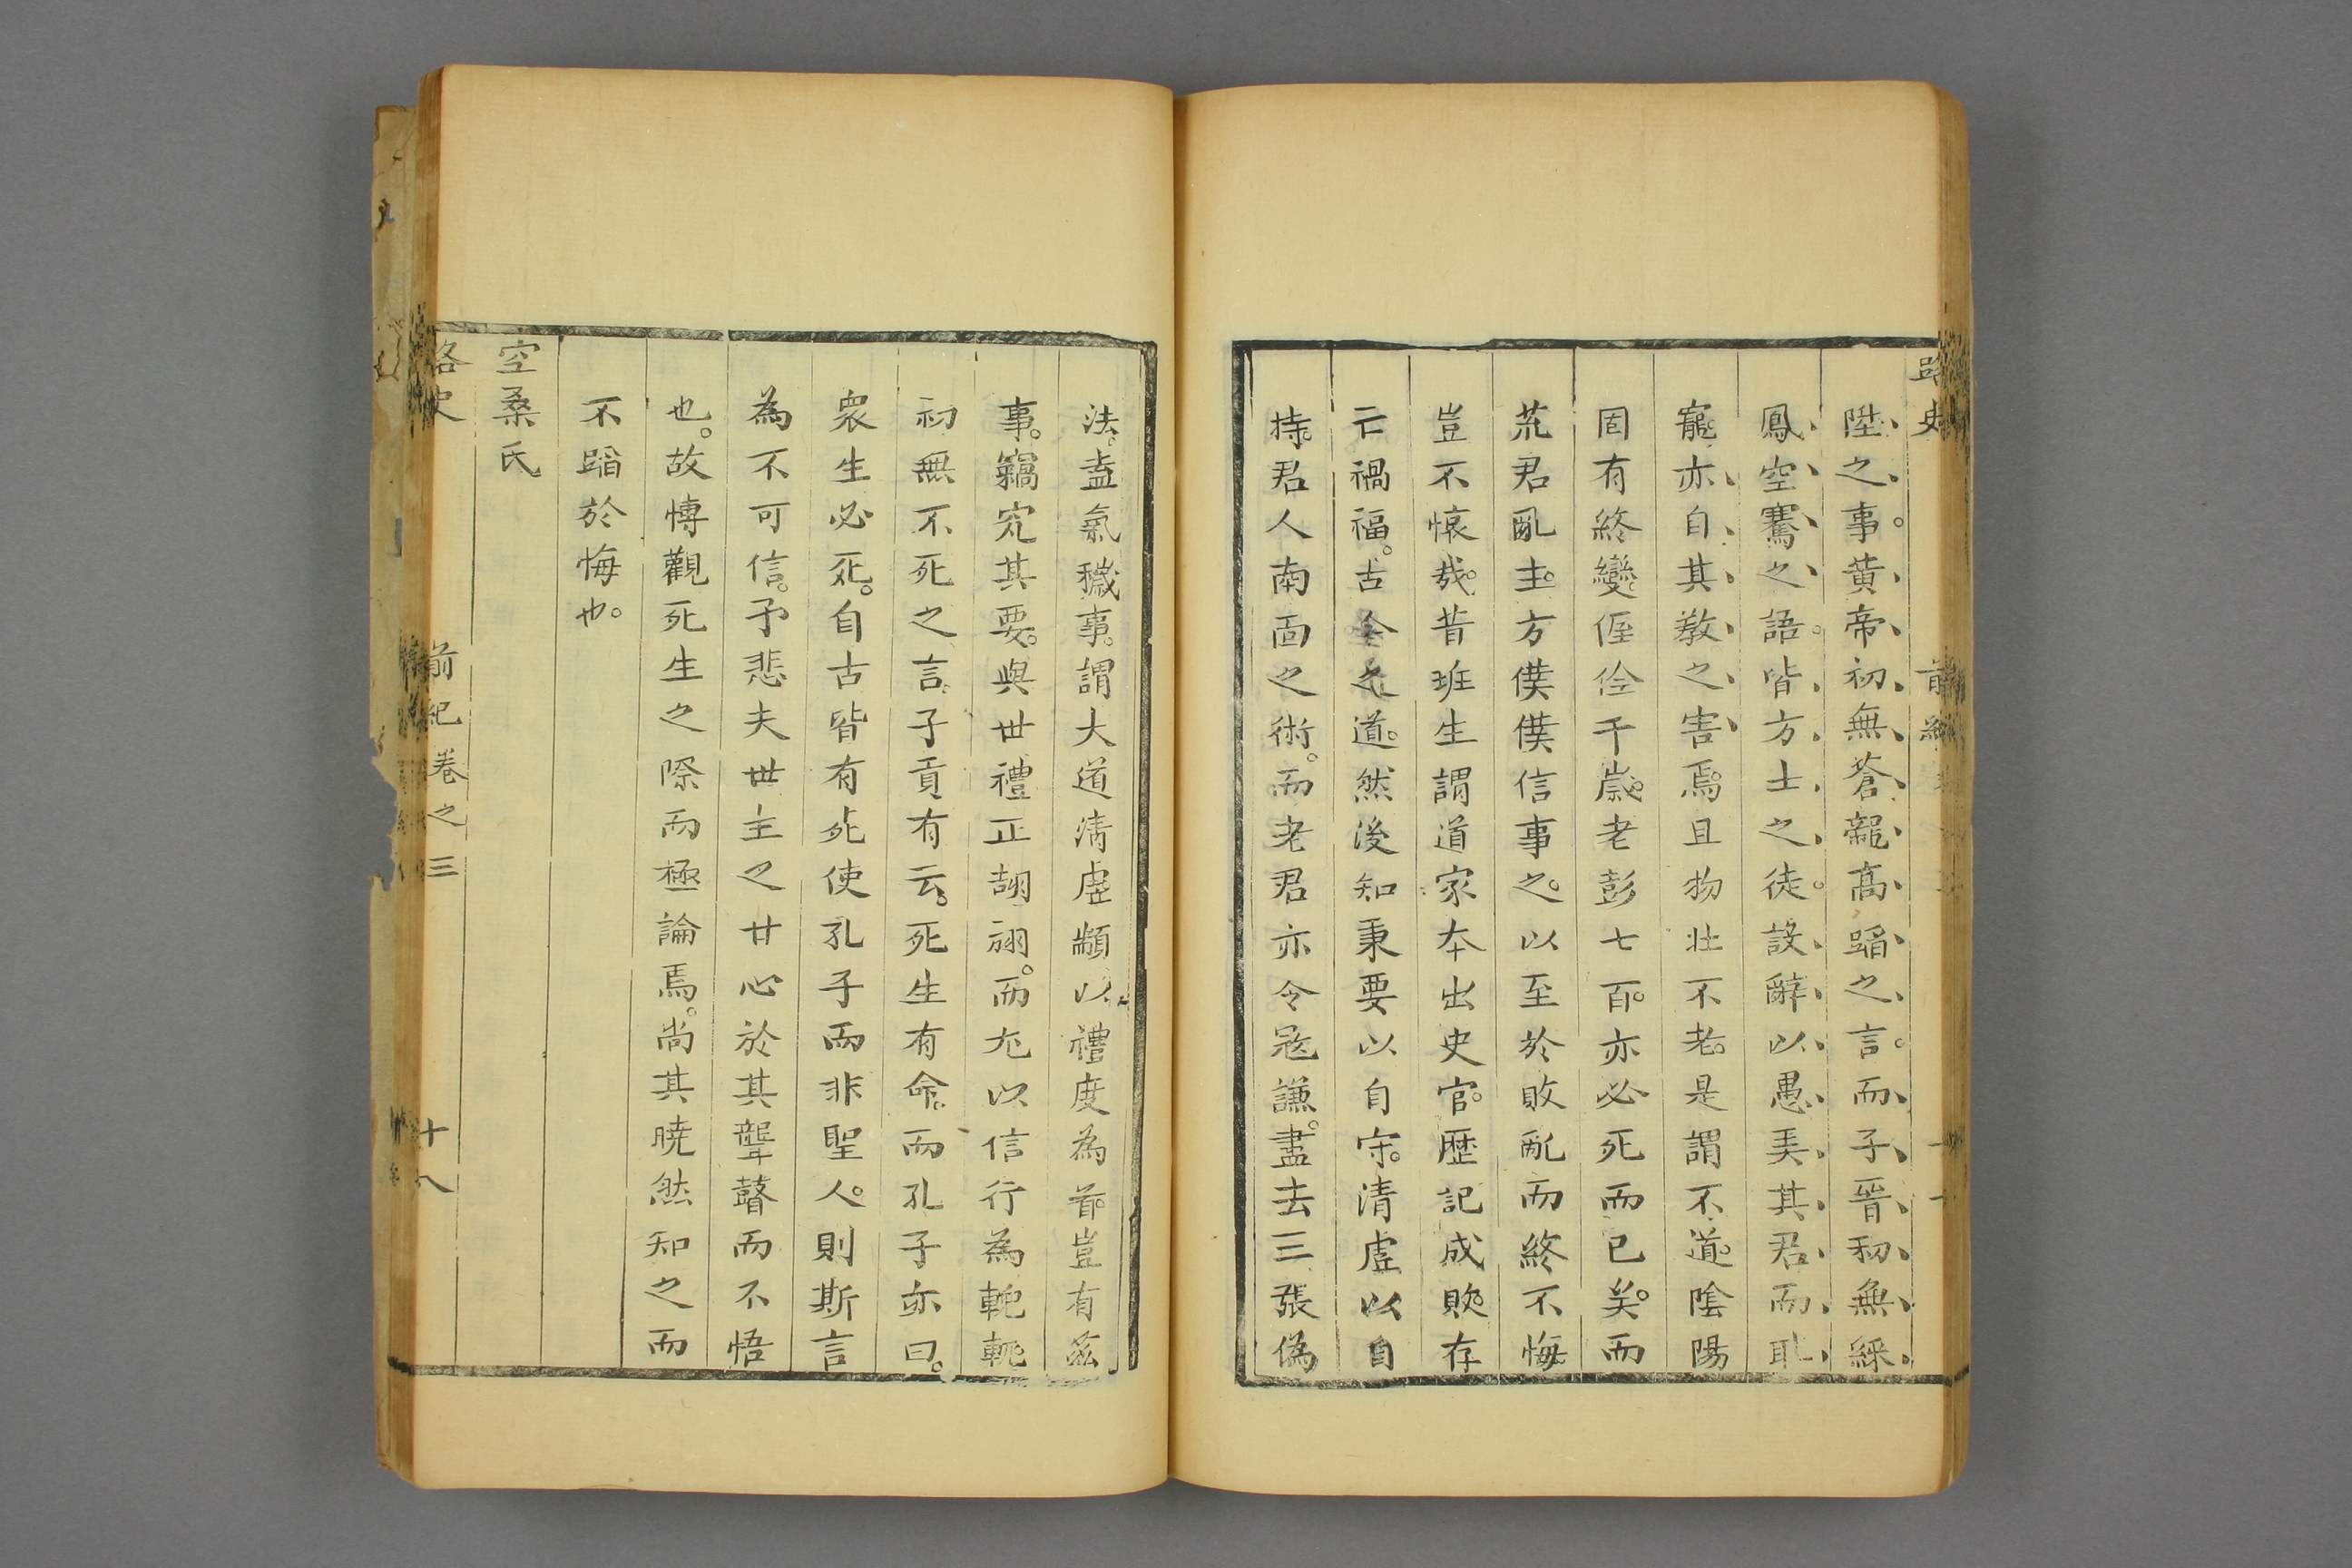 路史
前紀
陞之事。黃帝初無蒼龍髙蹈之言。而子晉初無綵
鳳空騫之語。皆方士之徒。設辭以愚美其君而耽
寵。亦自其教之害焉。且物壯不老。是謂不道。陰陽
固有終變。偓佺千嵗。老彭七百。亦必死而已矣。而
荒君亂主。方僕僕信事之。以至於敗亂而終不悔。
豈不懷哉。昔班生謂道家本出史官。歷記成敗存
亡禍福。古今之道。然後知秉要以自守。清虛以自
持。君人南面之術。而老君亦令冦謙。盡去三張偽
法。盍氣穢事。謂大道清虛顓以禮度為首。豈有茲
事。竊究其要。與世禮正頡頏。而尤以信行為輗軏。
初無不死之言。子貢有云。死生有命。而孔子亦曰。
衆生必死。自古皆有死使孔子而非聖人。則斯言
為不可信。予悲夫世主之甘心於其聾瞽而不悟
也。故愽觀死生之際而極論焉。尚其曉然知之而
不蹈於悔也。
空桑氏
路史
前紀卷之三
十八